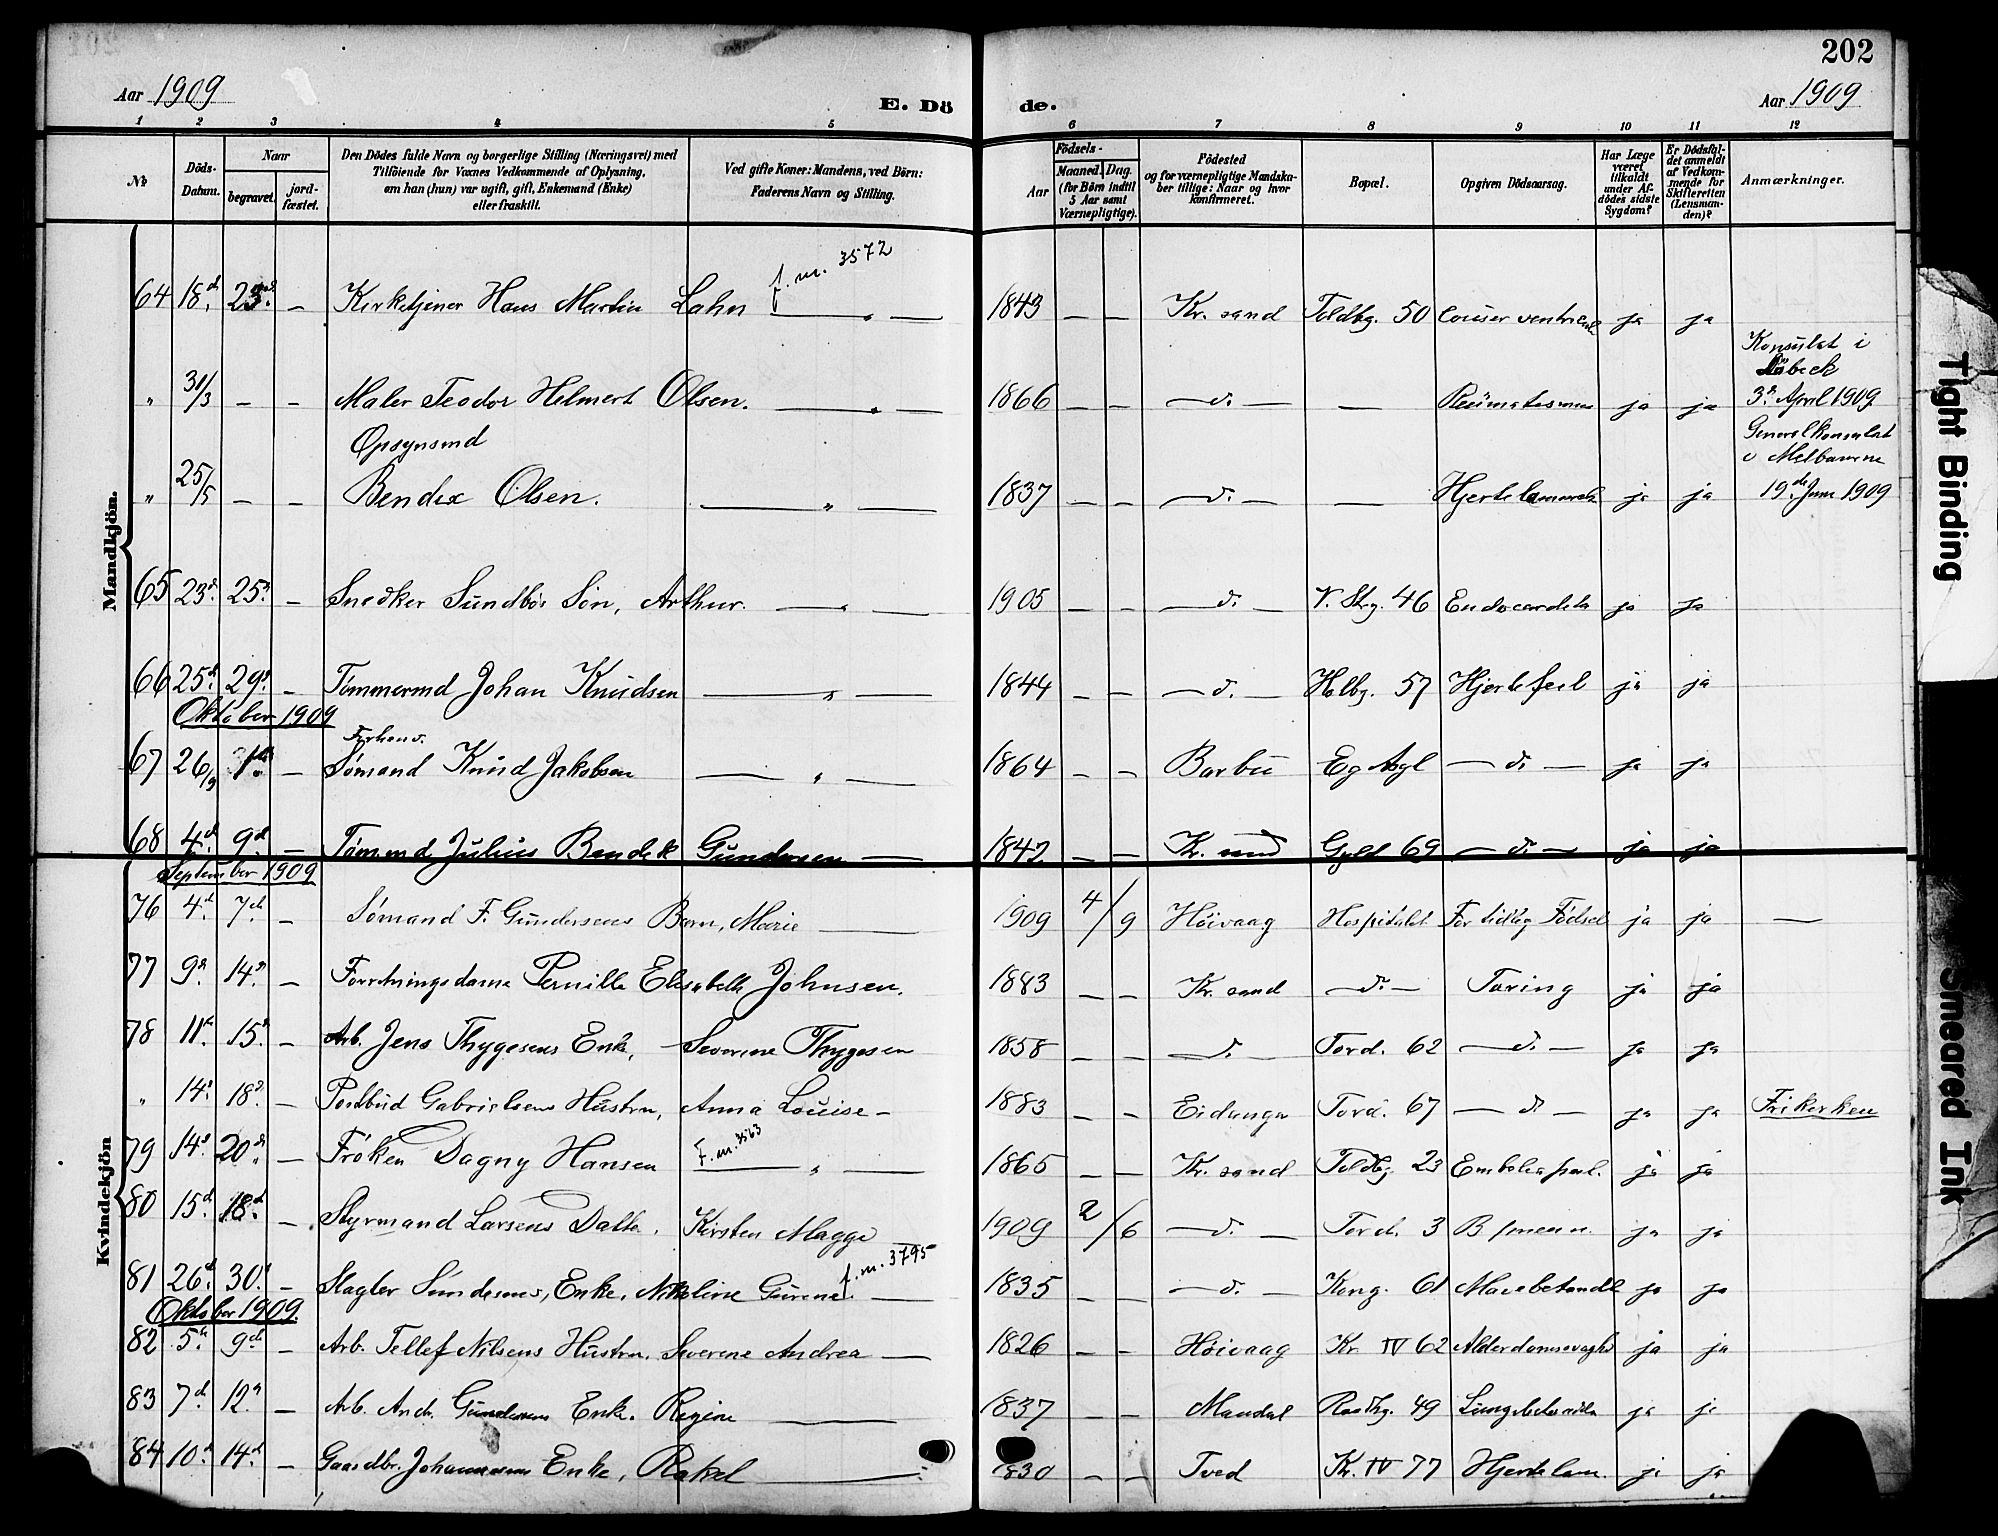 202
Aar 1909
E. Dö
de.
Aar 1909
1 2 3 4 5 6 7 8 9 10 11 12
No
Döds-Datum.
Naar
begravet.
jord-fæstet.
Den Dödes fulde Navn og borgerlige Stilling (Næringsvei) med
Tilföiende for Voxnes Vedkommende af Oplysning,
om han (hun) var ugift, gift, Enkemand (Enke)
eller fraskilt.
Ved gifte Koner: Mandens, ved Börn:
Faderens Navn og Stilling.
Födsels-
Aar
Maaned. Dag.
(for Börn indtil
5 Aar samt
Værnepligtige).
Födested
og for værnepligtige Mandska-
ber tillige: Naar og hvor
konfirmeret.
Bopæl.
Opgiven Dödsaarsag.
Har Læge
været
tilkaldt
under Af-
dödes sidste
Sygdom?
Er Dödsfal-
det anmeldt
af Vedkom-
mende for
Skifteretten
(Lensman-
den)?
Anmærkninger.
Mandkjön.
f. m. 3572
64 18d. 23d. — Kirketjener Hans Martin Lahn — " — 1843 — — Kr.sand Toldbg. 50 ja ja
Konsulat i
Lübeck
" 31/3 — — Maler Teodor Helmert Olsen. — " — 1866 — — — d. — — Reumatismus ja ja 3d. April 1909
Opsynsmd
Generalkonsulat
i Melbourne
" 25/5 — — Bendix Olsen. — " — 1837 — — — d. — — ja ja 19de Juni 1909
65 23d. 25d. — Snedker Sundbös Sön, Arthur. — " — 1905 — — — d. — V. Strg. 46 ja ja
66 25d. 29d. — Tømmermd Johan Knudsen — " — 1844 — — — d. — Holbg. 57 Hjertefeil ja ja
Oktober 1909
Forhenv.
67 26/9 — Sømand Knud Jakobsen — " — 1864 — — Barbu Eg Asyl — d. — ja ja
68 4d. 9d. — Tømmd Julius Bendik Gundersen — — — Kr.sand Gyld 69 — d. — ja ja
Kvindekjön
September 1909
76 4d. 7d. — Sømand F. Gundersens Barn, Marie — 1909 4/9 Höivaag Hospitalet For tidlig Födsel ja ja —
77 9d. 14d. — Forretningsdame Pernille Elisabeth Johnsen. 1883 — — Kr.sand — d. — Tæring ja ja
78 11te. 15d. — Arb. Jens Thygesens Enke, Severine Thygesen 1858 — — — d. — Tord. 62 — d. — ja ja
" 14d. 18d. — Postbud Gabrielsens Hustru, Anna Louise — 1883 — — Eidanger Tord. 67 — d. — ja ja Frikirken
79 14d. 20de. — Frøken Dagny Hansen F.m. 3563 — " — 1865 — — Kr.sand Toldbg 23 ja ja
80 15d. 18d. — Styrmand Larsens Datter, Kirsten Magge 1909 2/6 — d. — Tord. 3 ja ja
f. m. 3795
81 26d. 30d. — Slagter Enke, Nikoline Gurine. — 1835 — — — d. — Kong. 61 ja ja
Oktober 1909.
82 5te. 9d. — Arb. Tellef Nilsens Hustru, Severine Andrea — 1826 — — Höivaag Kr. IV 62 Alderdomssvaghed ja ja
83 7d. 12d. — Arb. Andr. Gundersens Enke. Regine — 1837 — — Mandal 49 ja ja
84 10d. 14d. — Gaardbr. Johannesens Enke, Rakel — 1830 — — Tved Kr. IV 77 Hjertelam. ja ja
Tight Binding
Smeared Ink